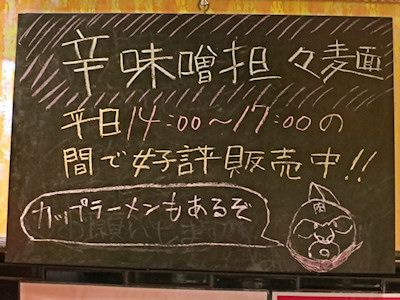 辛味噌担々麺
平日14:00～17:00の
間で好評販売中!!
カップラーメンもあるぞ
肉